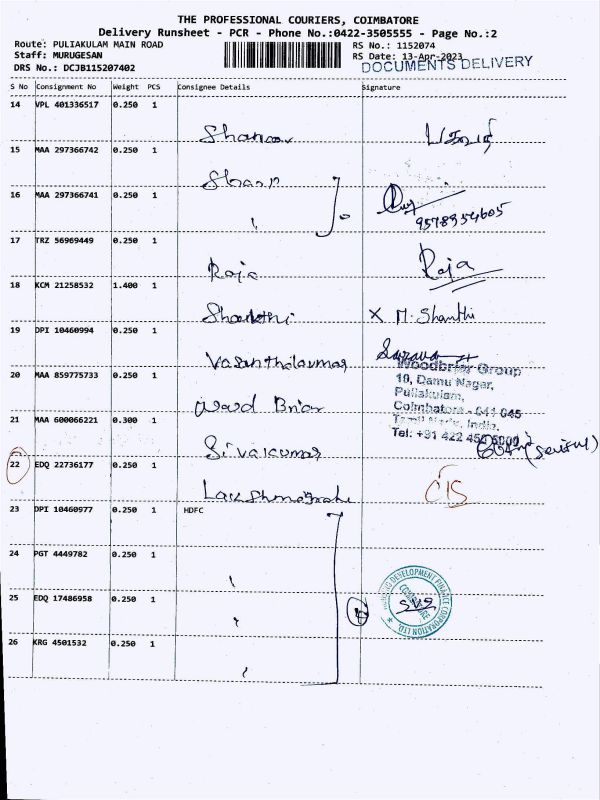 THE PROFESSIONAL COURIERS, COIMBATORE
Delivery Runsheet - PCR - Phone No.:0422-3505555 - Page No.:2
Route: PULIAKULAM MAIN ROAD
RS No.: 1152074
Staff: MURUGESAN
RS Date: 13-Apr-2023
DRS No.: DCJB115207402
DOCUMENTS DELIVERY
S No Consignment No Weight PCS Consignee Details Signature
14 VPL 401336517 0.250 1
15 MAA 297366742 0.250 1
16 MAA 297366741 0.250 1
9578954605
17 TRZ 56969449 0.250 1
Raja Raja
18 KCM 21258532 1.400 1
X M. Shanthi
19 DPI 10460994 0.250 1
Vasanthakumar
20 MAA 859775733 0.250 1
Woodbriar Group
10, Damu Nagar,
Puliakulam,
Coimbatore - 641 045
Tamil Nadu, India.
21 MAA 600066221 0.300 1
Sivakumar
22 EDQ 22736177 0.250 1
CIS
23 DPI 10460977 0.250 1 HDFC
24 PGT 4449782 0.250 1
25 EDQ 17486958 0.250 1
HOUSING DEVELOPMENT FINANCE CORPORATION LTD.
COIMBATORE
26 KRG 4501532 0.250 1